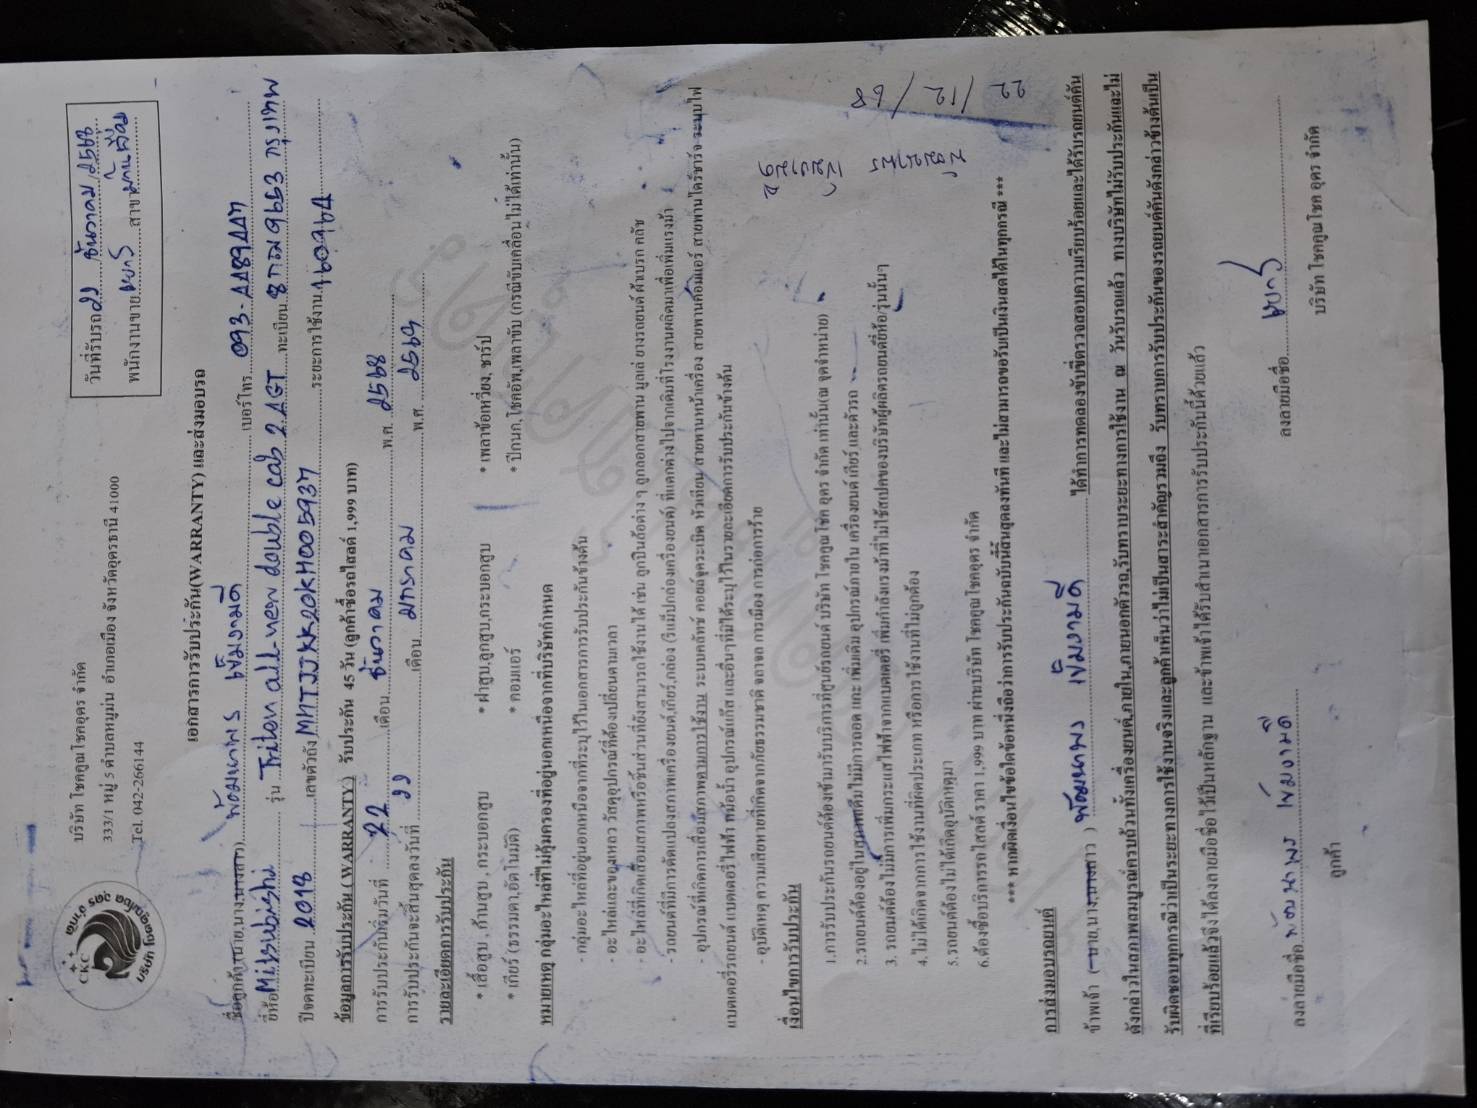 CKC
บริษัท โชคคูณโชคอุดร จำกัด
333/1 หมู่ 5 ตำบลหมูม่น อำเภอเมือง จังหวัดอุดรธานี 41000
Tel. 042-266144
วันที่รับรถ 22 ธันวาคม 2568
พนักงานขาย สาขา
เอกสารการรับประกัน(WARRANTY) และส่งมอบรถ
ชื่อลูกค้า(นาย,นาง,นางสาว) เบอร์โทร. 093-4489447
ยี่ห้อ Mitsubishi รุ่น Triton all-new double cab 2.4GT ทะเบียน 8กฌ 9653 กรุงเทพ
ปีจดทะเบียน 2018 เลขตัวถัง MMTJJKK20KH005937 ระยะการใช้งาน 160964
ข้อมูลการรับประกัน ( WARRANTY ) รับประกัน 45 วัน (ลูกค้าซื้อรถไสลด์ 1,999 บาท)
การรับประกันเริ่มวันที่ 22 เดือน ธันวาคม พ.ศ. 2568
การรับประกันจะสิ้นสุดลงวันที่ 22 เดือน มกราคม พ.ศ. 2569
รายละเอียดการรับประกัน
* เสื้อสูบ ,ก้านสูบ ,กระบอกสูบ * ฝาสูบ,ลูกสูบ,กระบอกสูบ * เพลาข้อเหวี่ยง, ชาร์ป
* เกียร์ (ธรรมดา,อัตโนมัติ) * คอมแอร์ * ปีกนก,โชคอัพ,เพลาขับ (กรณีขับเคลื่อนไม่ได้เท่านั้น)
หมายเหตุ กลุ่มอะไหล่ที่ไม่คุ้มครองที่อยู่นอกเหนือจากที่บริษัทกำหนด
- กลุ่มอะไหล่ที่อยู่นอกเหนือจากที่ระบุไว้ในเอกสารการรับประกันข้างต้น
- อะไหล่และของเหลว วัสดุอุปกรณ์ที่ต้องเปลี่ยนตามเวลา
- อะไหล่ที่เกิดเสื่อมสภาพหรือชิ้นส่วนที่ยังสามารถใช้งานได้ เช่น ลูกปืนล้อต่าง ๆ ลูกลอกสายพาน มูเล่ ยางรถยนต์ ผ้าเบรก คลัช
- รถยนต์ที่มีการดัดแปลงสภาพเครื่องยนต์,เกียร์,กล่อง (รีแม็ปกล่องเครื่องยนต์) ที่แตกต่างไปจากเดิมที่โรงงานผลิตมาเพื่อเพิ่มแรงม้า
- อุปกรณ์ที่เกิดการเสื่อมสภาพตามการใช้งาน ระบบคลัทช์ คอยล์จุดระเบิด หัวเทียน สายพานหน้าเครื่อง สายพานคอมแอร์ สายพานไดร์ชาร์จ ระบบไฟ
แบตเตอรี่รถยนต์ แบตเตอรี่ไฟฟ้า หม้อน้ำ อุปกรณ์แก๊ส และอื่นๆที่มิได้ระบุไว้ในรายละเอียดการรับประกันข้างต้น
- อุบัติเหตุ ความเสียหายที่เกิดจากภัยธรรมชาติ จลาจล การเมือง การก่อการร้าย
เงื่อนไขการรับประกัน
1.การรับประกันรถยนต์ต้องเข้ามารับบริการที่ศูนย์รถยนต์ บริษัท โชคคูณโชค อุดร จำกัด เท่านั้น(ณ จุดจำหน่าย)
2.รถยนต์ต้องอยู่ในสภาพเดิมไม่มีการถอด แกะ เพิ่มเติม อุปกรณ์ภายใน เครื่องยนต์ เกียร์ และตัวรถ
3. รถยนต์ต้องไม่มีการเพิ่มกระแสไฟฟ้าจากแบตเตอรี่ เพิ่มกำลังแรงม้าที่ไม่ใช้สเปคของบริษัทผู้ผลิตรถยนต์ยี่ห้อ/รุ่นนั้นๆ
4.ไม่ได้เกิดจากการใช้งานที่ผิดประเภท หรือการใช้งานที่ไม่ถูกต้อง
5.รถยนต์ต้องไม่ได้เกิดอุบัติเหตุมา
6.ต้องซื้อบริการรถไสลด์ ราคา 1,999 บาท ผ่านบริษัท โชคคูณโชคอุดร จำกัด
*** หากผิดเงื่อนไขข้อใดข้อหนึ่งถือว่าการรับประกันฉบับนี้สิ้นสุดลงทันที และไม่สามารถขอรับเป็นเงินสดได้ในทุกกรณี ***
22/12/68
การส่งมอบรถยนต์
ข้าพเจ้า ( นาย,นาง,นางสาว ) ได้ทำการทดลองขับขี่ตรวจสอบความเรียบร้อยและได้รับรถยนต์คัน
ดังกล่าวในสภาพสมบูรณ์ครบถ้วนทั้งเครื่องยนต์,ภายใน,ภายนอกตัวรถ,รับทราบระยะทางการใช้งาน ณ วันรับรถแล้ว ทางบริษัทไม่รับประกันและไม่
รับผิดชอบทุกกรณีว่าเป็นระยะทางการใช้งานจริงและลูกค้าเห็นว่าไม่เป็นสาระสำคัญรวมถึง รับทราบการรับประกันของรถยนต์คันดังกล่าวข้างต้นเป็น
ที่เรียบร้อยแล้วจึงได้ลงลายมือชื่อไว้เป็นหลักฐาน และข้าพเจ้าได้รับสำเนาเอกสารการรับประกันนี้ด้วยแล้ว
ลงลายมือชื่อ ลงลายมือชื่อ
ลูกค้า บริษัท โชคคูณโชค อุดร จำกัด